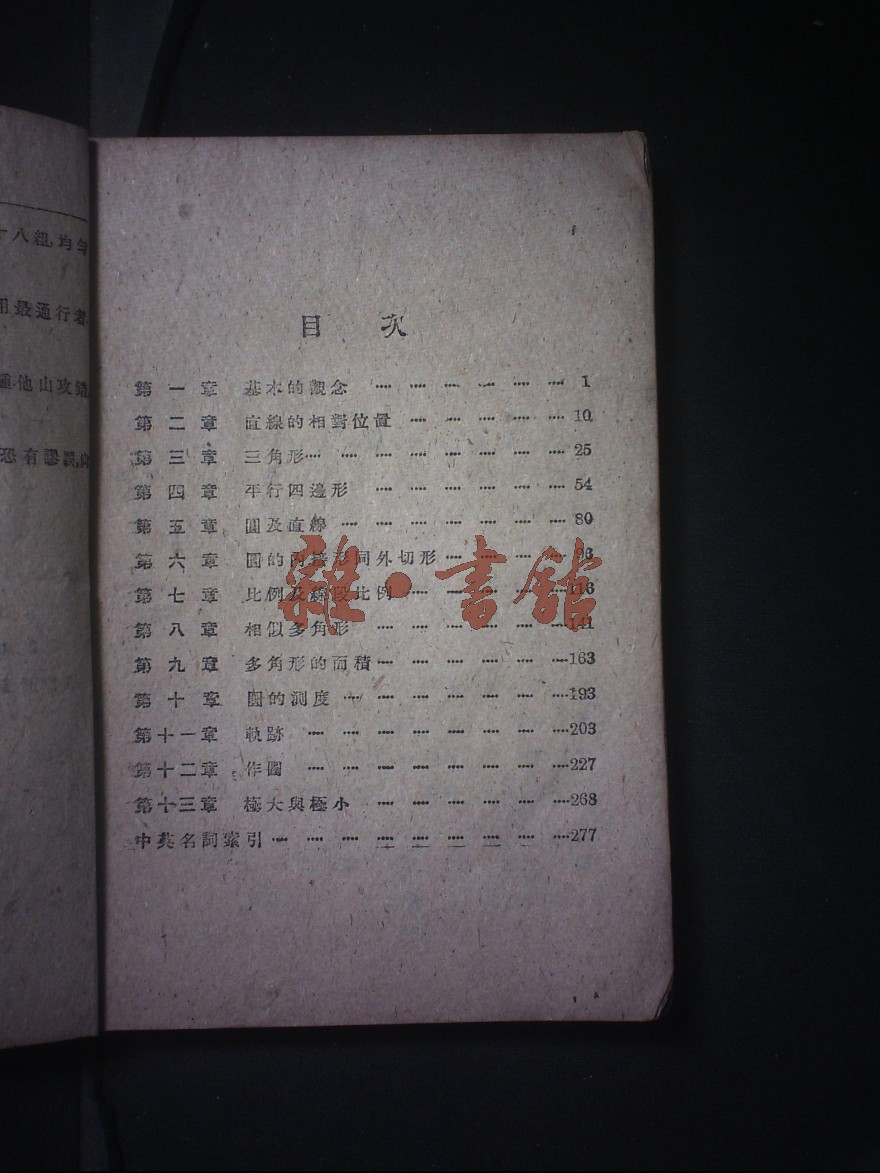 目 次
第一章 基本的觀念 ···· ···· ···· ···· ···· ···· 1
第二章 直線的相對位置 ···· ···· ···· ···· ···· 10
第三章 三角形···· ···· ···· ···· ···· ···· ···· 25
第四章 平行四邊形 ···· ···· ···· ···· ···· ···· 54
第五章 圓及直線 ···· ···· ···· ···· ···· ···· ···· 80
第六章 圓的內接形同外切形 ···· ···· ···· ···· 96
第七章 比例及線段比例 ···· ···· ···· ···· ····116
第八章 相似多角形 ···· ···· ···· ···· ···· ····141
第九章 多角形的面積 ···· ···· ···· ···· ···· ····163
第十章 圓的測度 ···· ···· ···· ···· ···· ···· ····193
第十一章 軌跡 ···· ···· ···· ···· ···· ···· ···· ····203
第十二章 作圖 ···· ···· ···· ···· ···· ···· ···· ····227
第十三章 極大與極小 ···· ···· ···· ···· ···· ····268
中英名詞索引 ···· ···· ···· ···· ···· ···· ···· ···· ····277
雜·書館
十八組,均勻
用最通行者
他山攻錯
恐有謬誤,